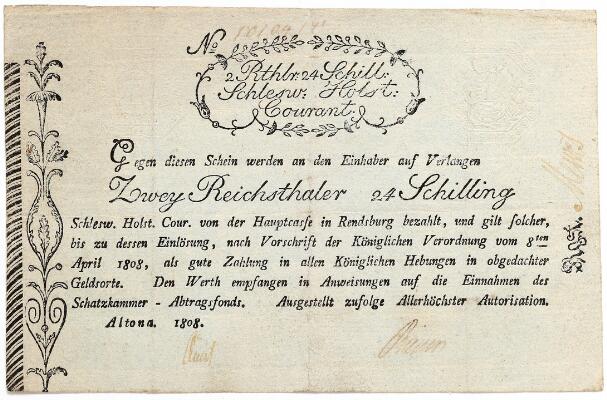 No
2 Rthlr. 24 Schill:
Schlesw: Holst:
Courant.
Gegen diesen Schein werden an den Einhaber auf Verlangen
Zwey Reichsthaler 24 Schilling
Schlesw. Holst. Cour. von der Hauptcasse in Rendsburg bezahlt, und gilt solcher,
bis zu dessen Einlösung, nach Vorschrift der Königlichen Verordnung vom 8ten
April 1808, als gute Zahlung in allen Königlichen Hebungen in obgedachter
Geldsorte. Den Werth empfangen in Anweisungen auf die Einnahmen des
Schatzkammer - Abtragsfonds. Ausgestellt zufolge Allerhöchster Autorisation.
Altona. 1808.